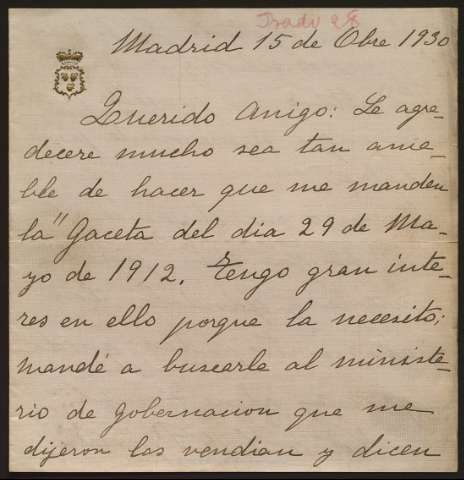 Madrid 15 de Obre 1930
Querido Amigo: Le agra-
decere mucho sea tan ama-
ble de hacer que me manden
la "Gaceta del dia 29 de Ma-
yo de 1912. Tengo gran inte-
res en ello porque la necesito;
mandé a buscarla al ministe-
rio de Gobernacion que me
dijeron las vendian y dicen